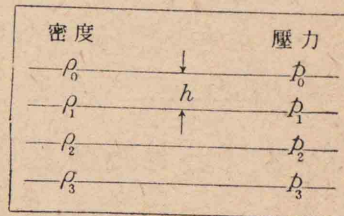 密度 壓力
ρ₀ p₀
h
ρ₁ p₁
ρ₂ p₂
ρ₃ p₃